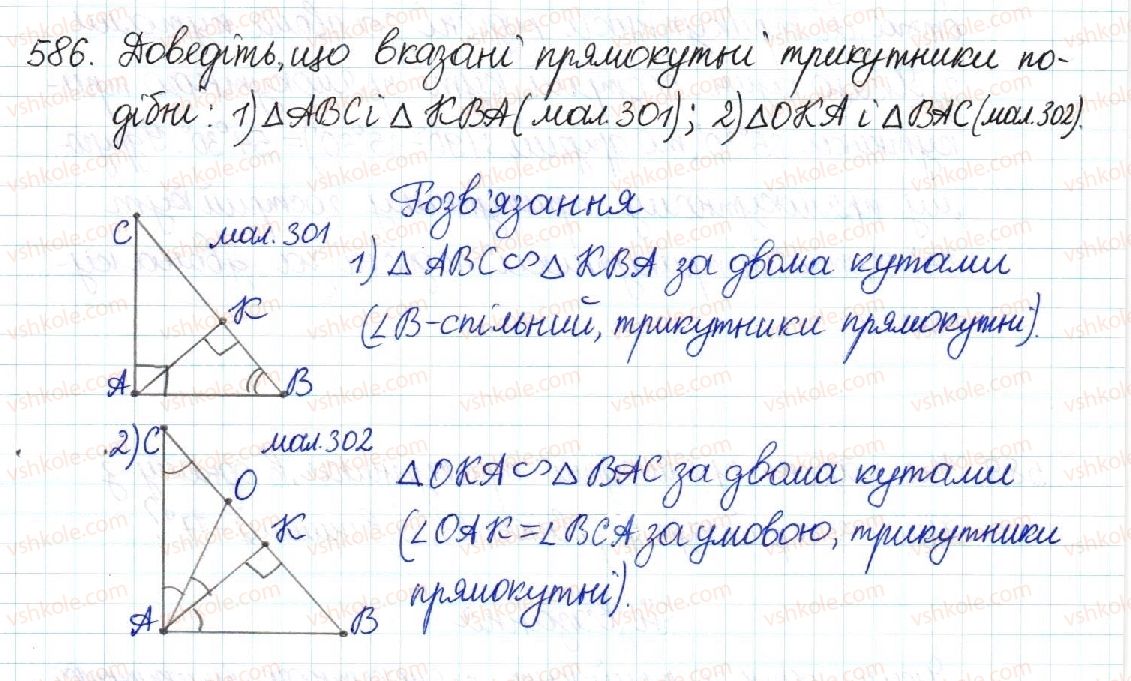 586. Доведіть, що вказані прямокутні трикутники по-
дібні: 1) △ABC і △KBA (мал. 301); 2) △OKA і △BAC (мал. 302).
Розв'язання
C мал. 301
1) △ABC ∽ △KBA за двома кутами
K
(∠B - спільний, трикутники прямокутні).
A B
2) C мал. 302
△OKA ∽ △BAC за двома кутами
O
K
(∠OAK = ∠BCA за умовою, трикутники
прямокутні).
A B
vshkole.com